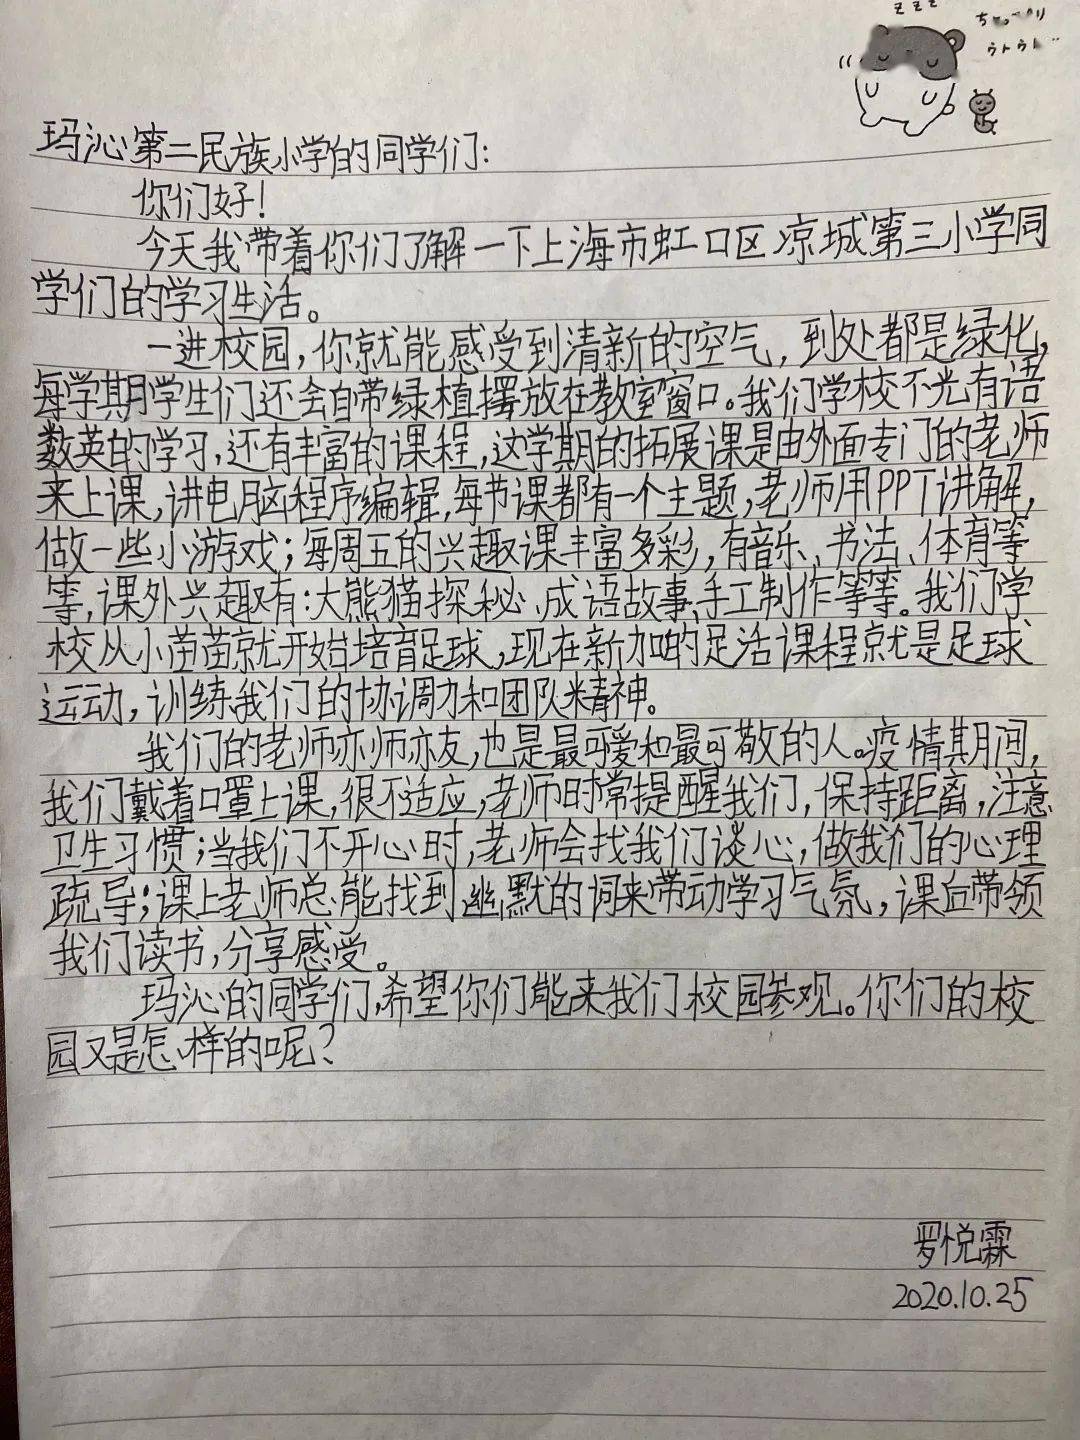 z z z
玛沁第二民族小学的同学们:
你们好!
今天我带着你们了解一下上海市虹口区凉城第三小学同
学们的学习生活。
一进校园,你就能感受到清新的空气,到处都是绿化,
每学期学生们还会自带绿植摆放在教室窗口。我们学校不光有语
数英的学习,还有丰富的课程,这学期的拓展课是由外面专门的老师
来上课,讲电脑程序编辑,每节课都有一个主题,老师用PPT讲解,
做一些小游戏;每周五的兴趣课丰富多彩,有音乐、书法、体育等
等,课外兴趣有:大熊猫探秘、成语故事、手工制作等等。我们学
校从小苗苗就开始培育足球,现在新加的足活课程就是足球
运动,训练我们的协调力和团队精神。
我们的老师亦师亦友,也是最可爱和最可敬的人。疫情期间,
我们戴着口罩上课,很不适应,老师时常提醒我们,保持距离,注意
卫生习惯;当我们不开心时,老师会找我们谈心,做我们的心理
疏导;课上老师总能找到幽默的词来带动学习气氛,课后带领
我们读书,分享感受。
玛沁的同学们,希望你们能来我们校园参观。你们的校
园又是怎样的呢?
罗悦霖
2020.10.25